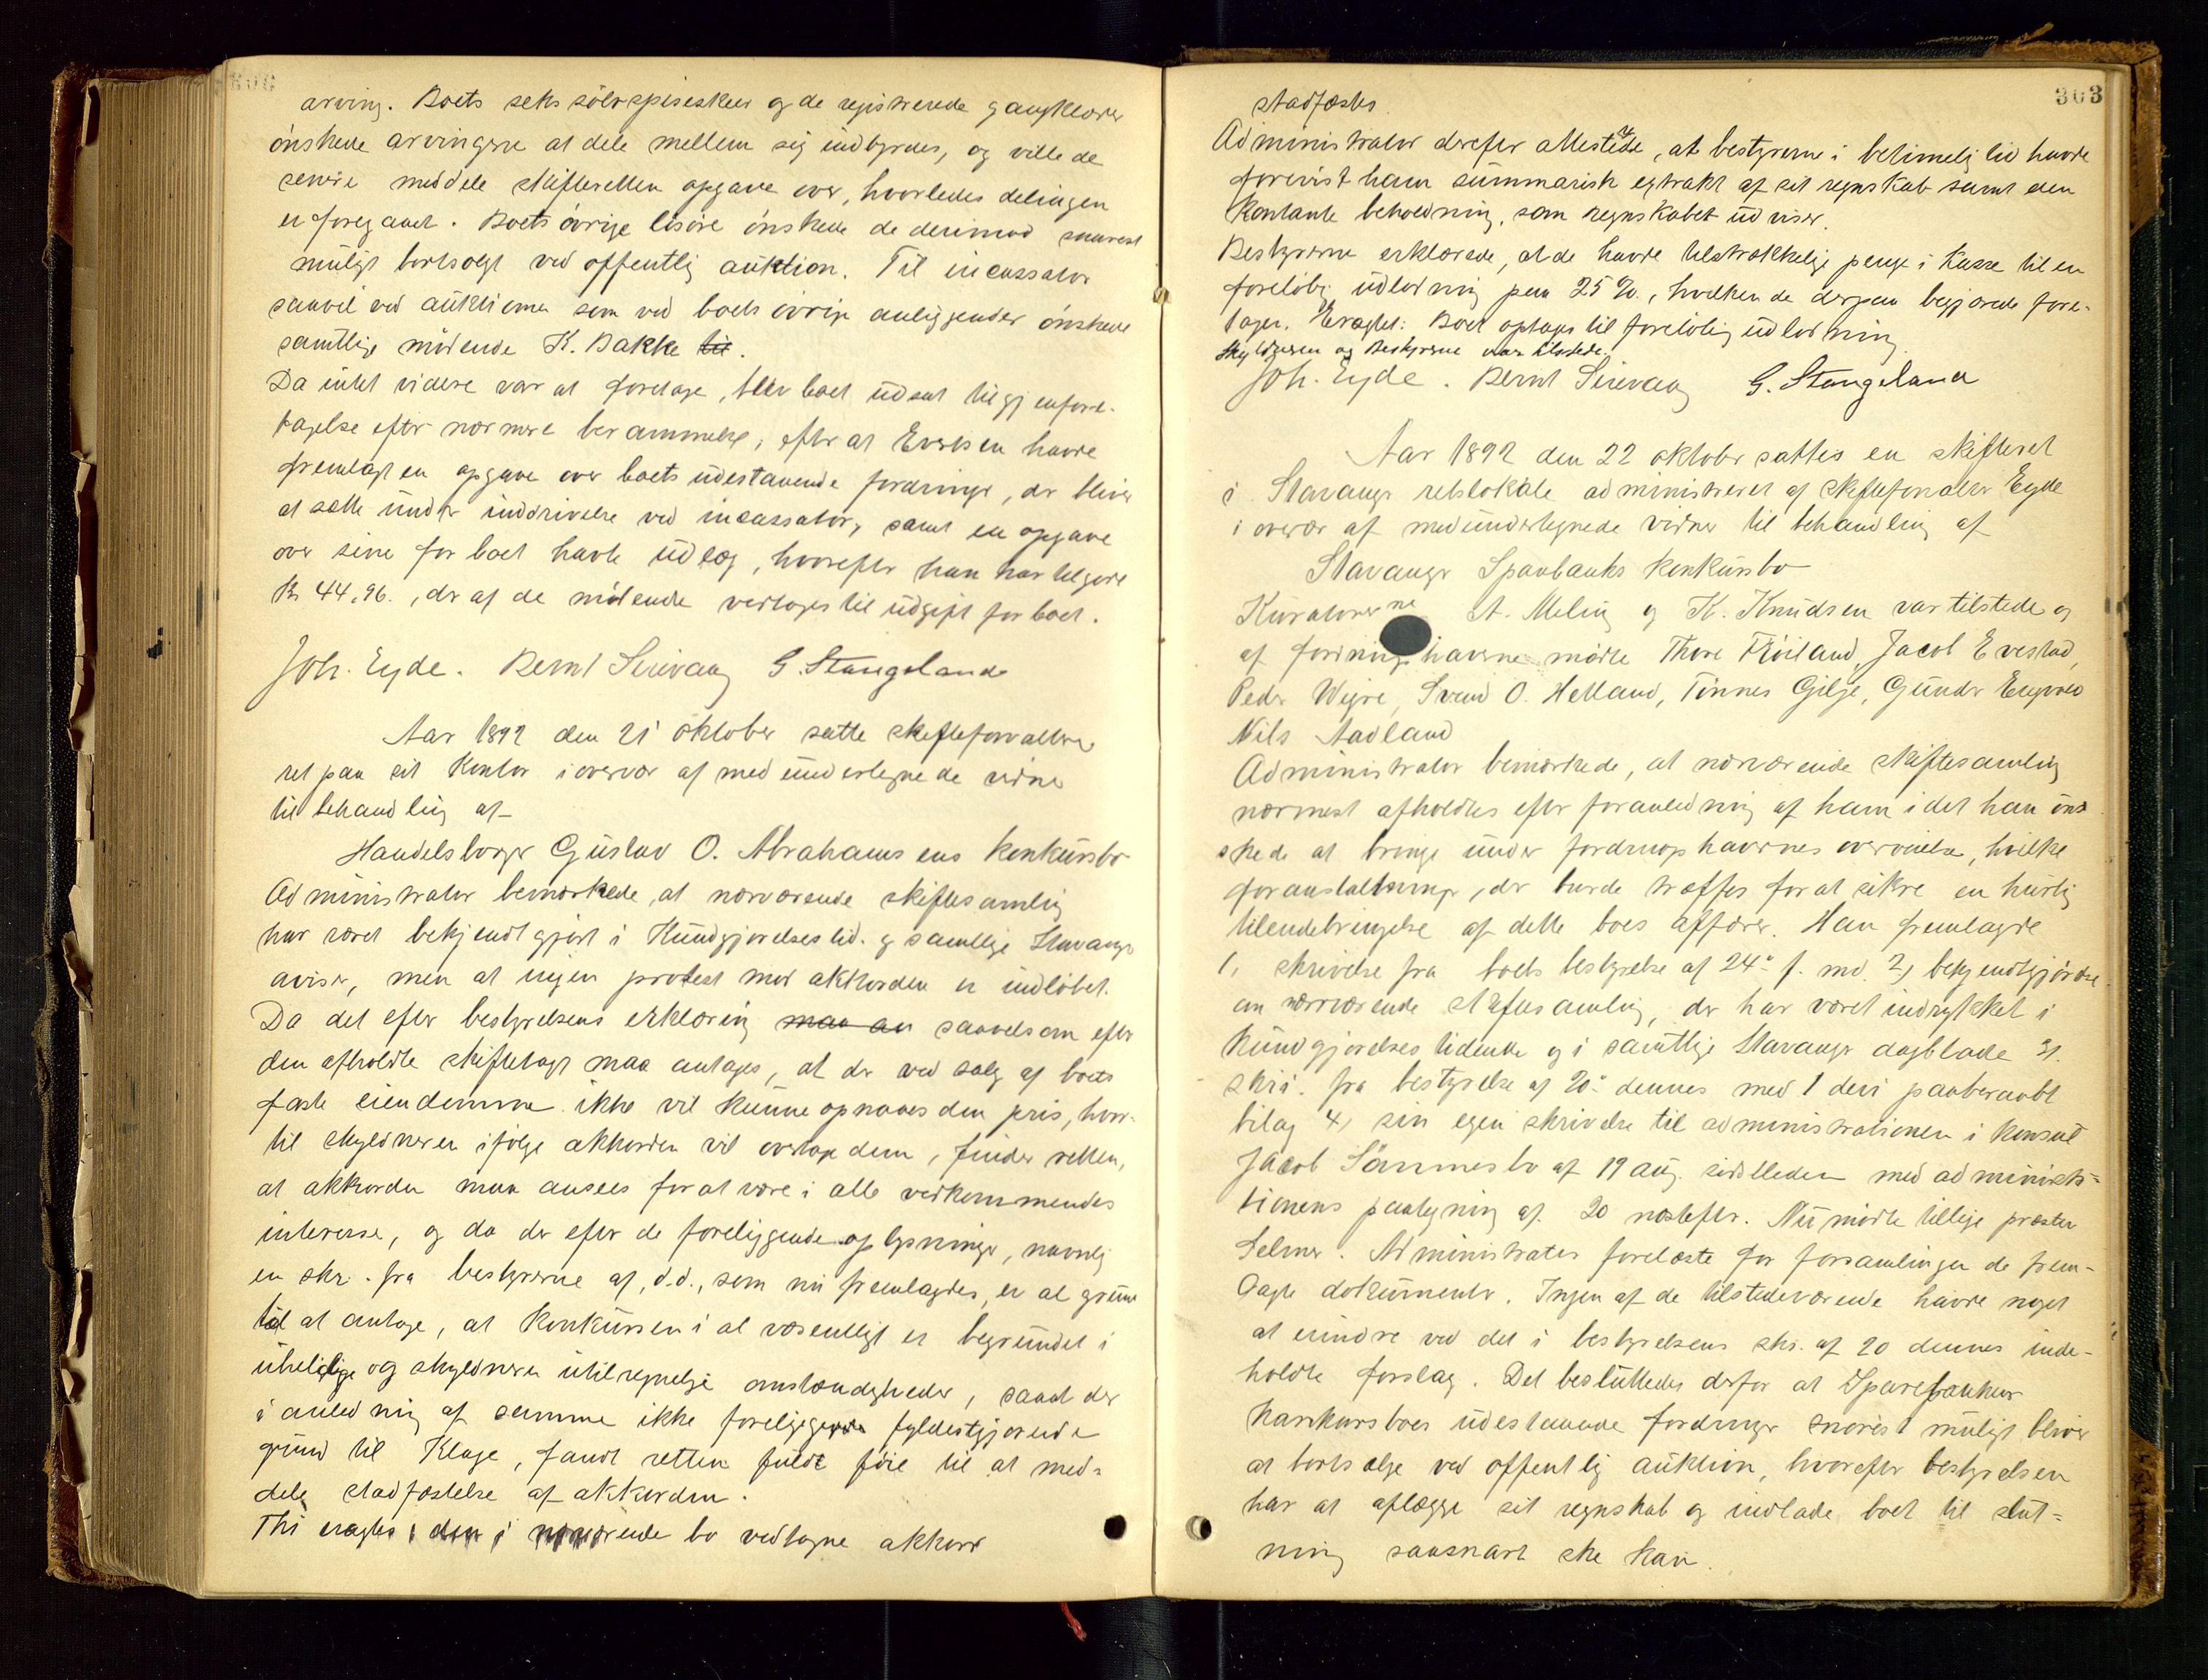 arving. Boets seks sölvspiseskeer og de registrerede gangklæder
ønskede arvingerne at dele mellem sig indbyrdes, og vilde de
senere meddele skifteretten opgave over, hvorledes delingen
er foregaaet. Boets øvrige løsøre ønskede de derimod snarest
muligt bortsolgt ved offentlig auktion. Til incassator
saavel ved auktionen som ved boets øvrige anliggender ønskede
samtlige mødende K. Bakke til.
Da intet videre var at foretage, blev boet udsat til gjenfore-
tagelse efter nærmere berammelse, efter at Evertsen havde
fremlagt en opgave over boets udestaaende fordringer, der bliver
at sætte under inddrivelse ved incassator, samt en opgave
over sine for boet havte udlæg, hvorefter han har tilgode
Kr 44,96., der af de mødende vedtoges til udgift for boet.
Joh. Eyde. Bernt Sirevaag G. Stangeland
Aar 1892 den 21 oktober satte skifteforvalteren
ret paa sit Kontor i overvær af medundertegnede vidner
til behandling af
Handelsborger Gustav O. Abrahamsens konkursbo
Administrator bemærkede, at nærværende skiftesamling
har været bekjendtgjort i Kundgjørelsestid. og samtlige Stavanger
aviser, men at ingen protest mod akkorden er indløbet.
Da det efter bestyrelsens erklæring maa an saavelsom efter
den afholdte skiftetaxt maa antages, at der ved salg af boets
faste eiendomme ikke vil kunne opnaaes den pris, hvor-
til skyldneren ifølge akkorden vil overtage dem, finder retten,
at akkorden maa ansees for at være i alle vedkommendes
interesse, og da der efter de foreliggende oplysninger, navnlig
en skr. fra bestyrerne af d.d., som nu fremlagdes, er al grund
til at antage, at Konkursen i al væsentligt er begrundet i
uheldige og skyldneren utilregnelige omstændigheder, samt der
i anledning af samme ikke foreliggende fyldestgjørende
grund til Klage, fandt retten fuld føie til at med-
dele stadfæstelse af akkorden.
Thi eragtes: den i nærværende bo vedtagne akkord
303
stadfæstes.
Administrator derefter attesterede, at bestyrerne i betimelig tid havde
forevist ham summarisk extrakt af sit regnskab samt den
kontante beholdning, som regnskabet udviser.
Bestyrerne erklærede, at de havde tilstrækkelige penge i Kasse til en
foreløbig udlodning paa 25 %, hvilken de derpaa begjærede fore-
tagen. Eragtet: Boet optages til foreløbig udlodning.
Skyldneren og Bestyrerne var tilstede.
Joh. Eyde. Bernt Sirevaag G. Stangeland
Aar 1892 den 22 oktober sattes en skifteret
i Stavanger retslokale administreret af skifteforvalter Eyde
i overvær af medundertegnede vidner til behandling af
Stavanger Sparebanks konkursbo
Kuratorerne A. Meling og K. Knudsen var tilstede og
af fordringshaverne mødte Thore Frøiland, Jacob Evestad,
Peder Wejre, Svend O. Helland, Tønnes Gilje, Gunder
Nils Aadland
Administrator bemærkede, at nærværende skiftesamling
nærmest afholdtes efter foranledning af ham idet han øns
kede at bringe under fordringshavernes overveielse, hvilke
foranstaltninger, der burde træffes for at sikre en hurtig
tilendebringelse af dette boes affærer. Han fremlagde
1, skrivelse fra boets bestyrelse af 24de f. md. 2, bekjendtgjørelse
om nærværende skiftesamling, der har været indrykket i
Kundgjørelsestidende og i samtlige Stavanger dagblade 3,
skri. fra bestyrelse af 20de dennes med 1 deri paaberaabt
bilag 4, sin egen skrivelse til administrationen i Konsul
Jacob Sømmes bo af 19 aug. sidstleden med administra-
tionens paategning af 20 næstefter. Nu mødte tillige præsten
Selmer. Administrator forelæste for forsamlingen de frem-
lagte dokumenter. Ingen af de tilstedeværende havde noget
at erindre ved det i bestyrelsens skr. af 20 dennes inde-
holdte forslag. Det besluttedes derfor at Sparebankens
Konkursboes udestaaende fordringer snarest muligt bliver
at bortsælge ved offentlig auktion, hvorefter bestyrelsen
har at aflægge sit regnskab og indlade boet til slut-
ning saasnart ske kan.